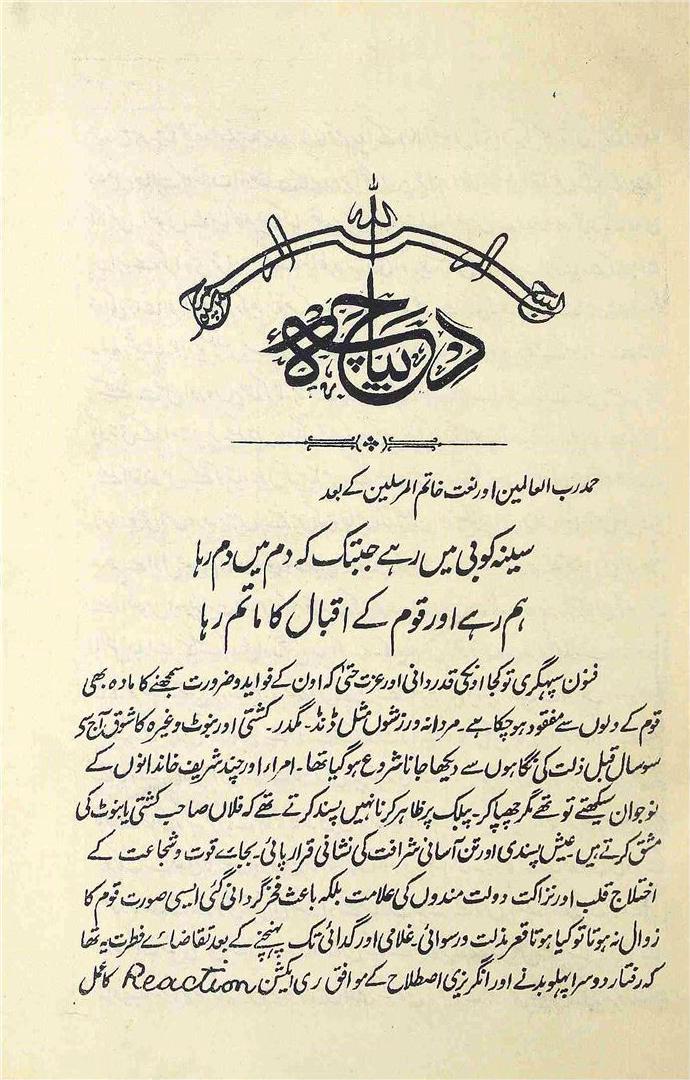 اللہ
دیباچہ
حمد رب العالمین اور نعت خاتم المرسلین کے بعد
سینہ کوبی میں رہے جبتک کہ دم میں دم رہا
ہم رہے اور قوم کے اقبال کا ماتم رہا
فنون سپہگری تو کجا اونکی قدردانی اور عزت حتیٰ کہ اون کے فواید و ضرورت سمجھنے کا مادہ بھی
قوم کے دلوں سے مفقود ہو چکا ہے۔ مردانہ ورزشوں مثل ڈنڈ۔ مگدر۔ کشتی اور بنوٹ وغیرہ کا شوق آج سے
سو سال قبل ذلت کی نگاہوں سے دیکھا جانا شروع ہو گیا تھا۔ امراء اور چند شریف خاندانوں کے
نوجوان سیکھتے تو تھے مگر چھپا کر۔ پبلک پر ظاہر کرنا نہیں پسند کرتے تھے کہ فلاں صاحب کشتی یا بنوٹ کی
مشق کرتے ہیں۔ عیش پسندی اور تن آسانی شرافت کی نشانی قرار پائی۔ بجاے قوت و شجاعت کے
اختلاج قلب اور نزاکت دولت مندوں کی علامت بلکہ باعث فخر گردانی گئی ایسی صورت قوم کا
زوال نہ ہوتا تو کیا ہوتا قعر مذلت و رسوائی۔ غلامی اور گدائی تک پہنچنے کے بعد تقاضاے فطرت یہ تھا
کہ رفتار دوسرا پہلو بدلے اور انگریزی اصطلاح کے موافق ری ایکشن Reaction کا عمل